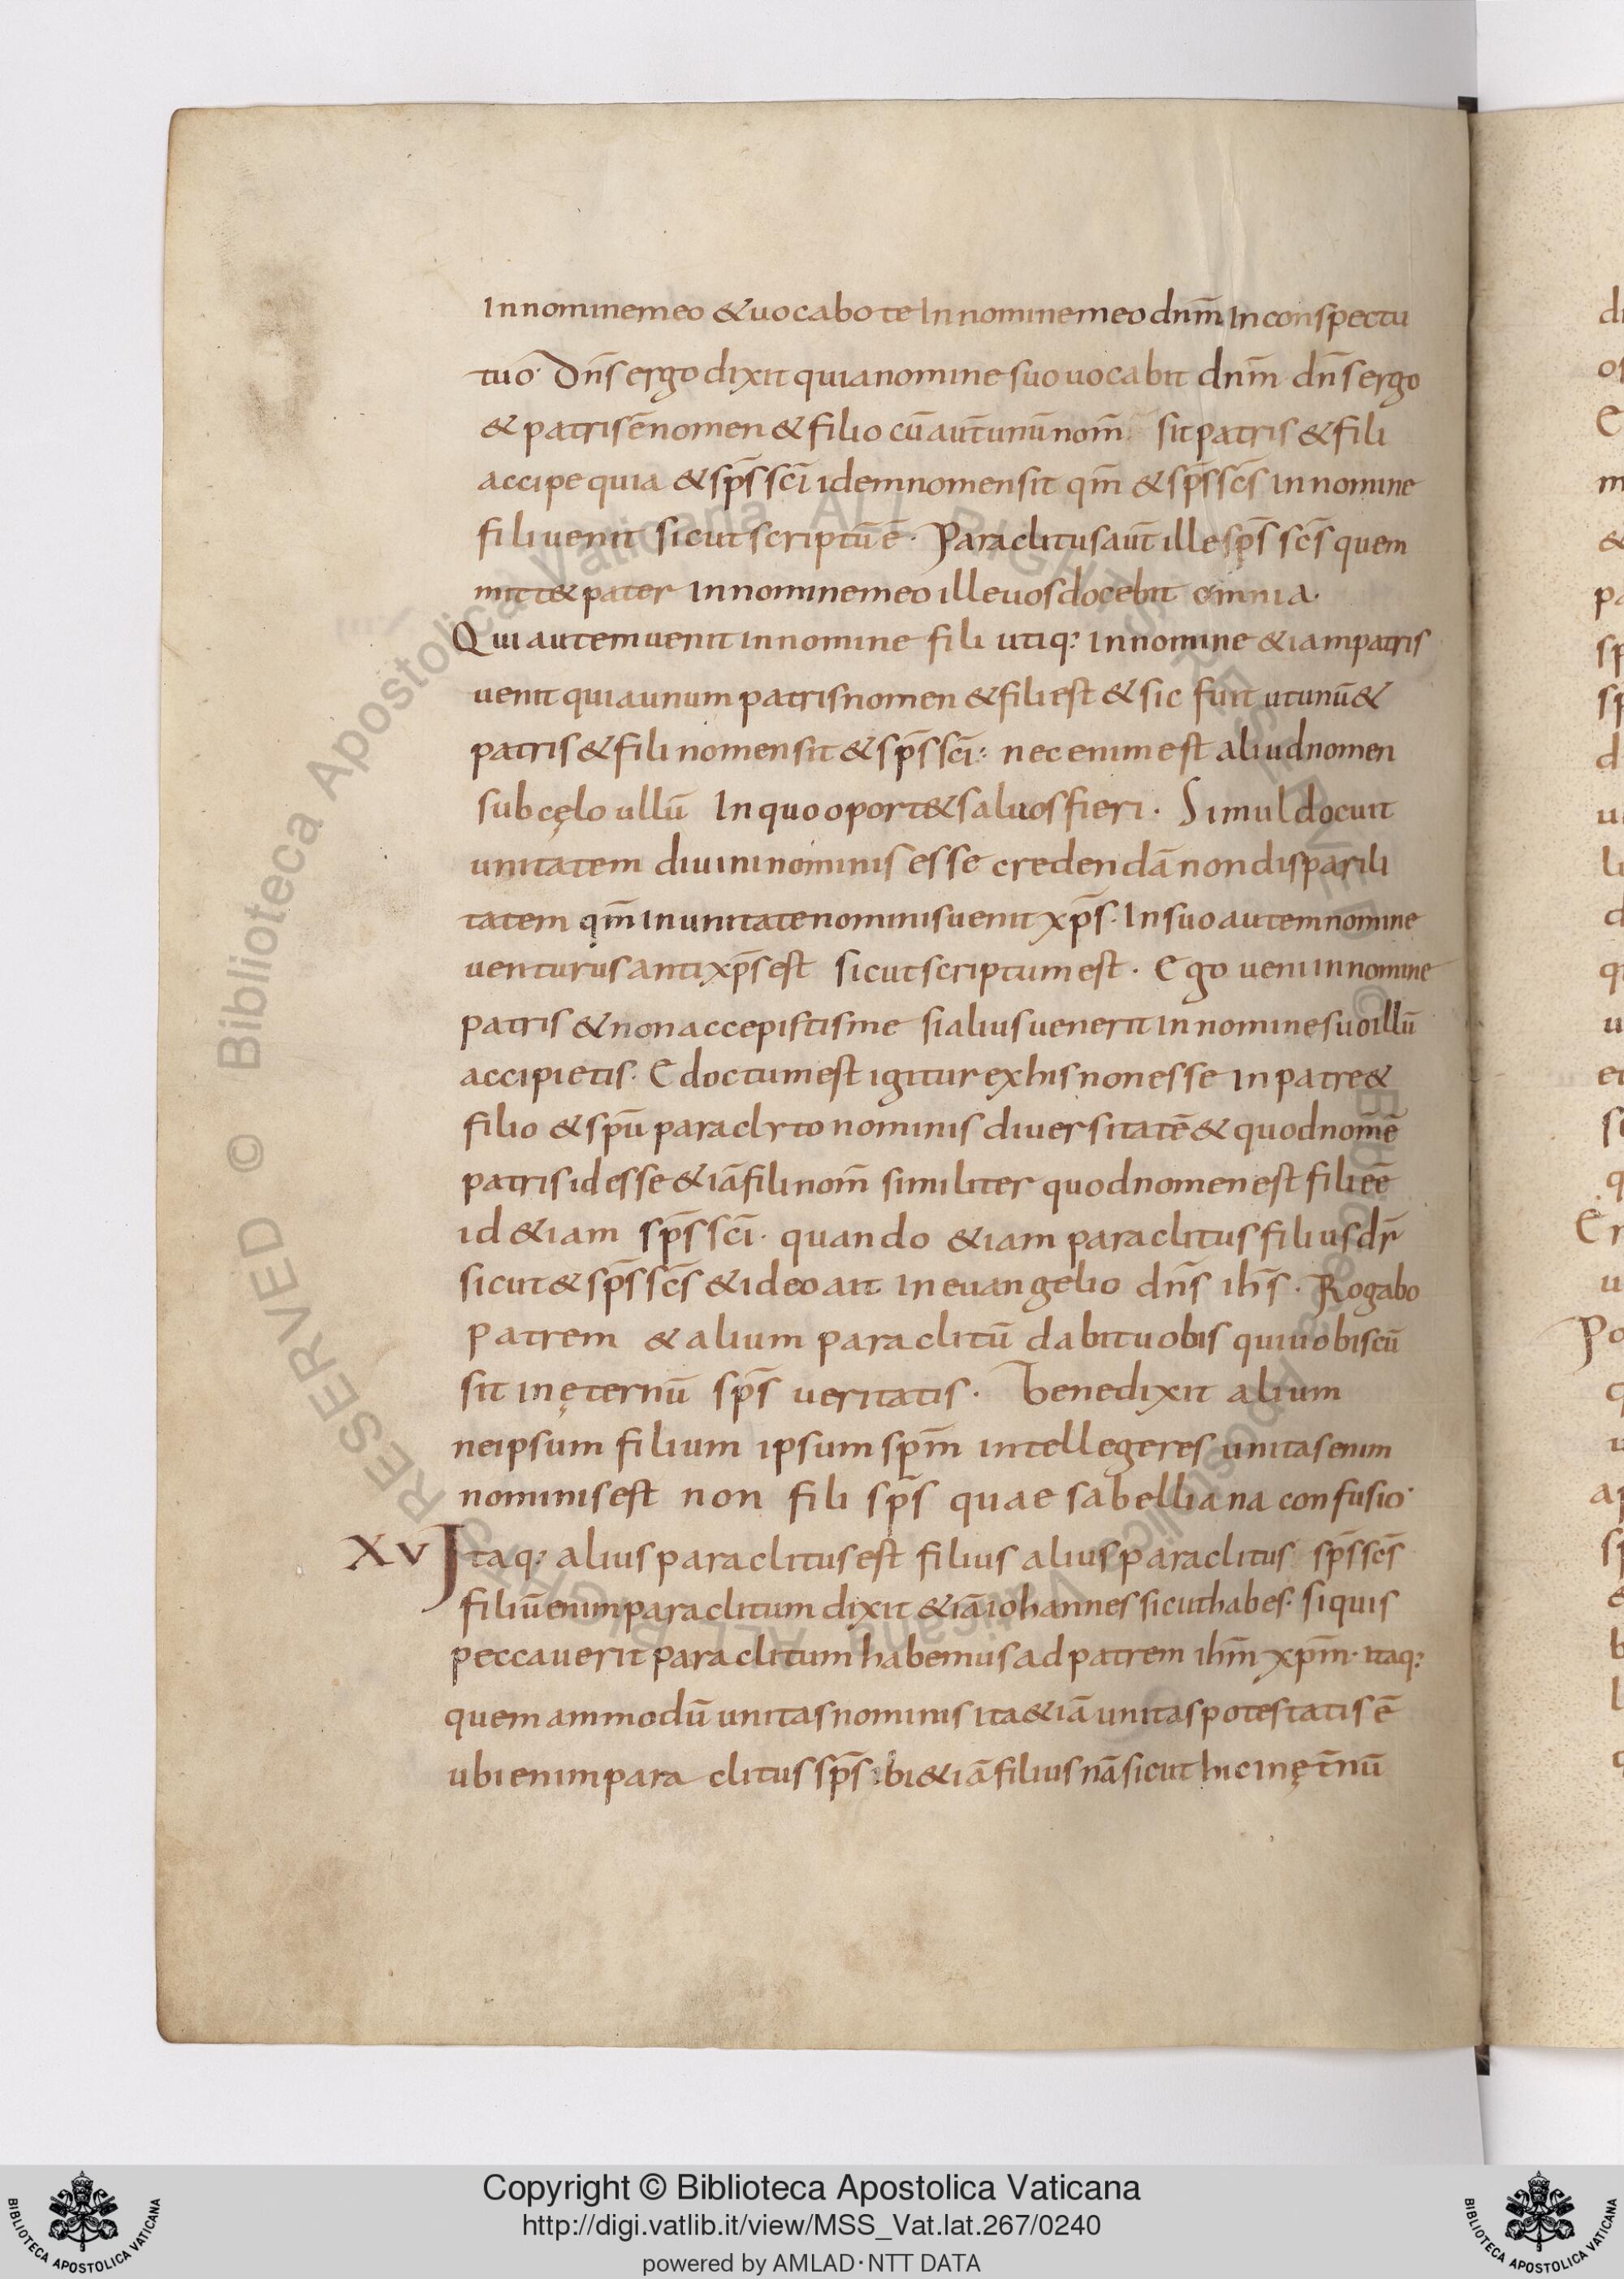 In nomine meo & uocabo te In nomine meo dnm̄ In conspectu
tuo· Dn̄s ergo dixit quia nomine suo uocabit dnm̄ dn̄s ergo
& patris ē nomen & filio cū aut̄ unū nom̄ sit patris & fili
accipe quia & sp̄s sc̄i idem nomen sit qm̄ & sp̄s sc̄s in nomine
fili uenit sicut scriptū ē· Paraclitus aut̄ ille sp̄s sc̄s quem
mitt& pater In nomine meo ille uos docebit omnia·
Qui autem uenit in nomine fili utiq: in nomine &iam patris
uenit quia unum patris nomen & fili est & sic fuit ut unū &
patris & fili nomen sit & sp̄s sc̄i: nec enim est aliud nomen
sub cęlo ullū In quo oport& saluos fieri· Simul docuit
unitatem diuini nominis esse credendā non disparili
tatem qm̄ in unitate nominis uenit xp̄s· In suo autem nomine
uenturus antixp̄s est sicut scriptum est· Ego ueni in nomine
patris & non accepistis me si alius uenerit in nomine suo illū
accipietis· Edoctum est igitur ex his non esse In patre &
filio & spū paraclyto nominis diuersitatē & quod nomē ē
patris id esse &iā fili nom̄ similiter quod nomen est fili eē
id &iam sp̄s sc̄i· quando &iam paraclitus filius dr̄
sicut & sp̄s sc̄s & ideo ait in euangelio dn̄s ih̄s· Rogabo
Patrem & alium paraclitū dabit uobis qui uobiscū
sit in ęternū sp̄s ueritatis· Bene dixit alium
ne ipsum filium ipsum spm̄ intellegeres unitas enim
nominis est non fili sp̄s quae sabelliana confusio·
XV Itaq: alius paraclitus est filius alius paraclitus sp̄s sc̄s
filiū enim paraclitum dixit &iā iohannes sicut habes· si quis
peccauerit paraclitum habemus ad patrem ihm̄ xpm̄· itaq:
quemammodū unitas nominis ita &iā unitas potestatis ē
ubi enim paraclitus sp̄s ibi &iā filius nā sicut hic in ęt̄nū
Copyright © Biblioteca Apostolica Vaticana
http://digi.vatlib.it/view/MSS_Vat.lat.267/0240
powered by AMLAD·NTT DATA